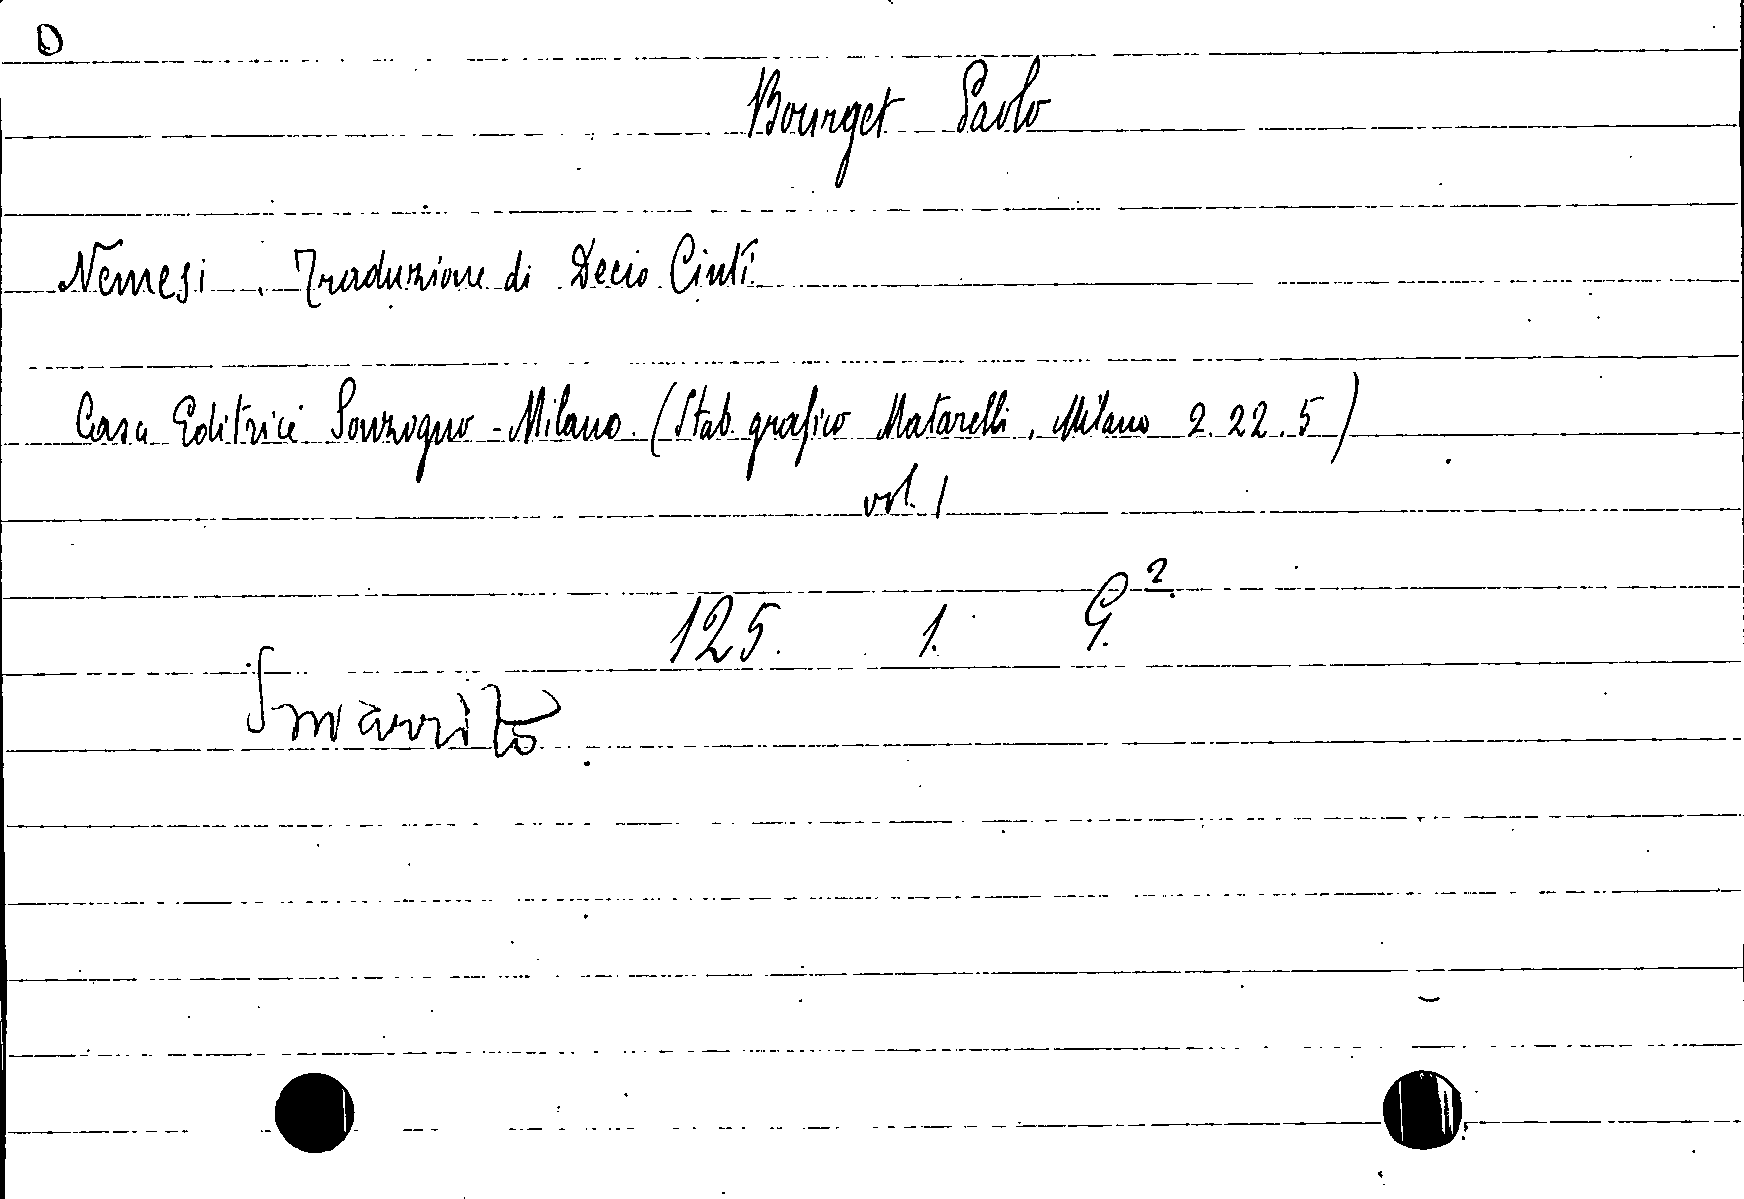 D
Bourget Paolo
Nemesi. Traduzione di Decio Cinti
Casa Editrice Sonzogno - Milano. (Stab. grafico Matarelli, Milano 2.22.5)
vol. 1
125. 1. G.²
Smarrito